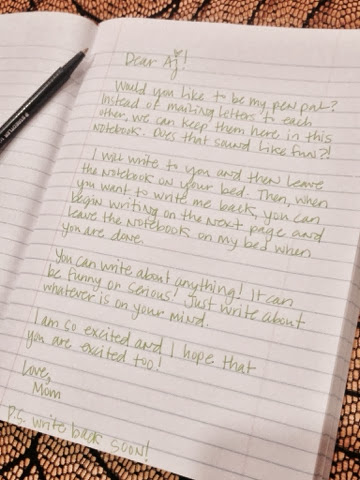 Dear Aj!
Would you like to be my pen pal?
Instead of mailing letters to each
other, we can keep them here in this
notebook. Does that sound like fun?!
I will write to you and then leave
the notebook on your bed. Then, when
you want to write me back, you can
begin writing on the next page and
leave the notebook on my bed when
you are done.
You can write about anything! It can
be funny or serious! Just write about
whatever is on your mind.
I am so excited and I hope that
you are excited too!
Love,
Mom
P.S. write back soon!